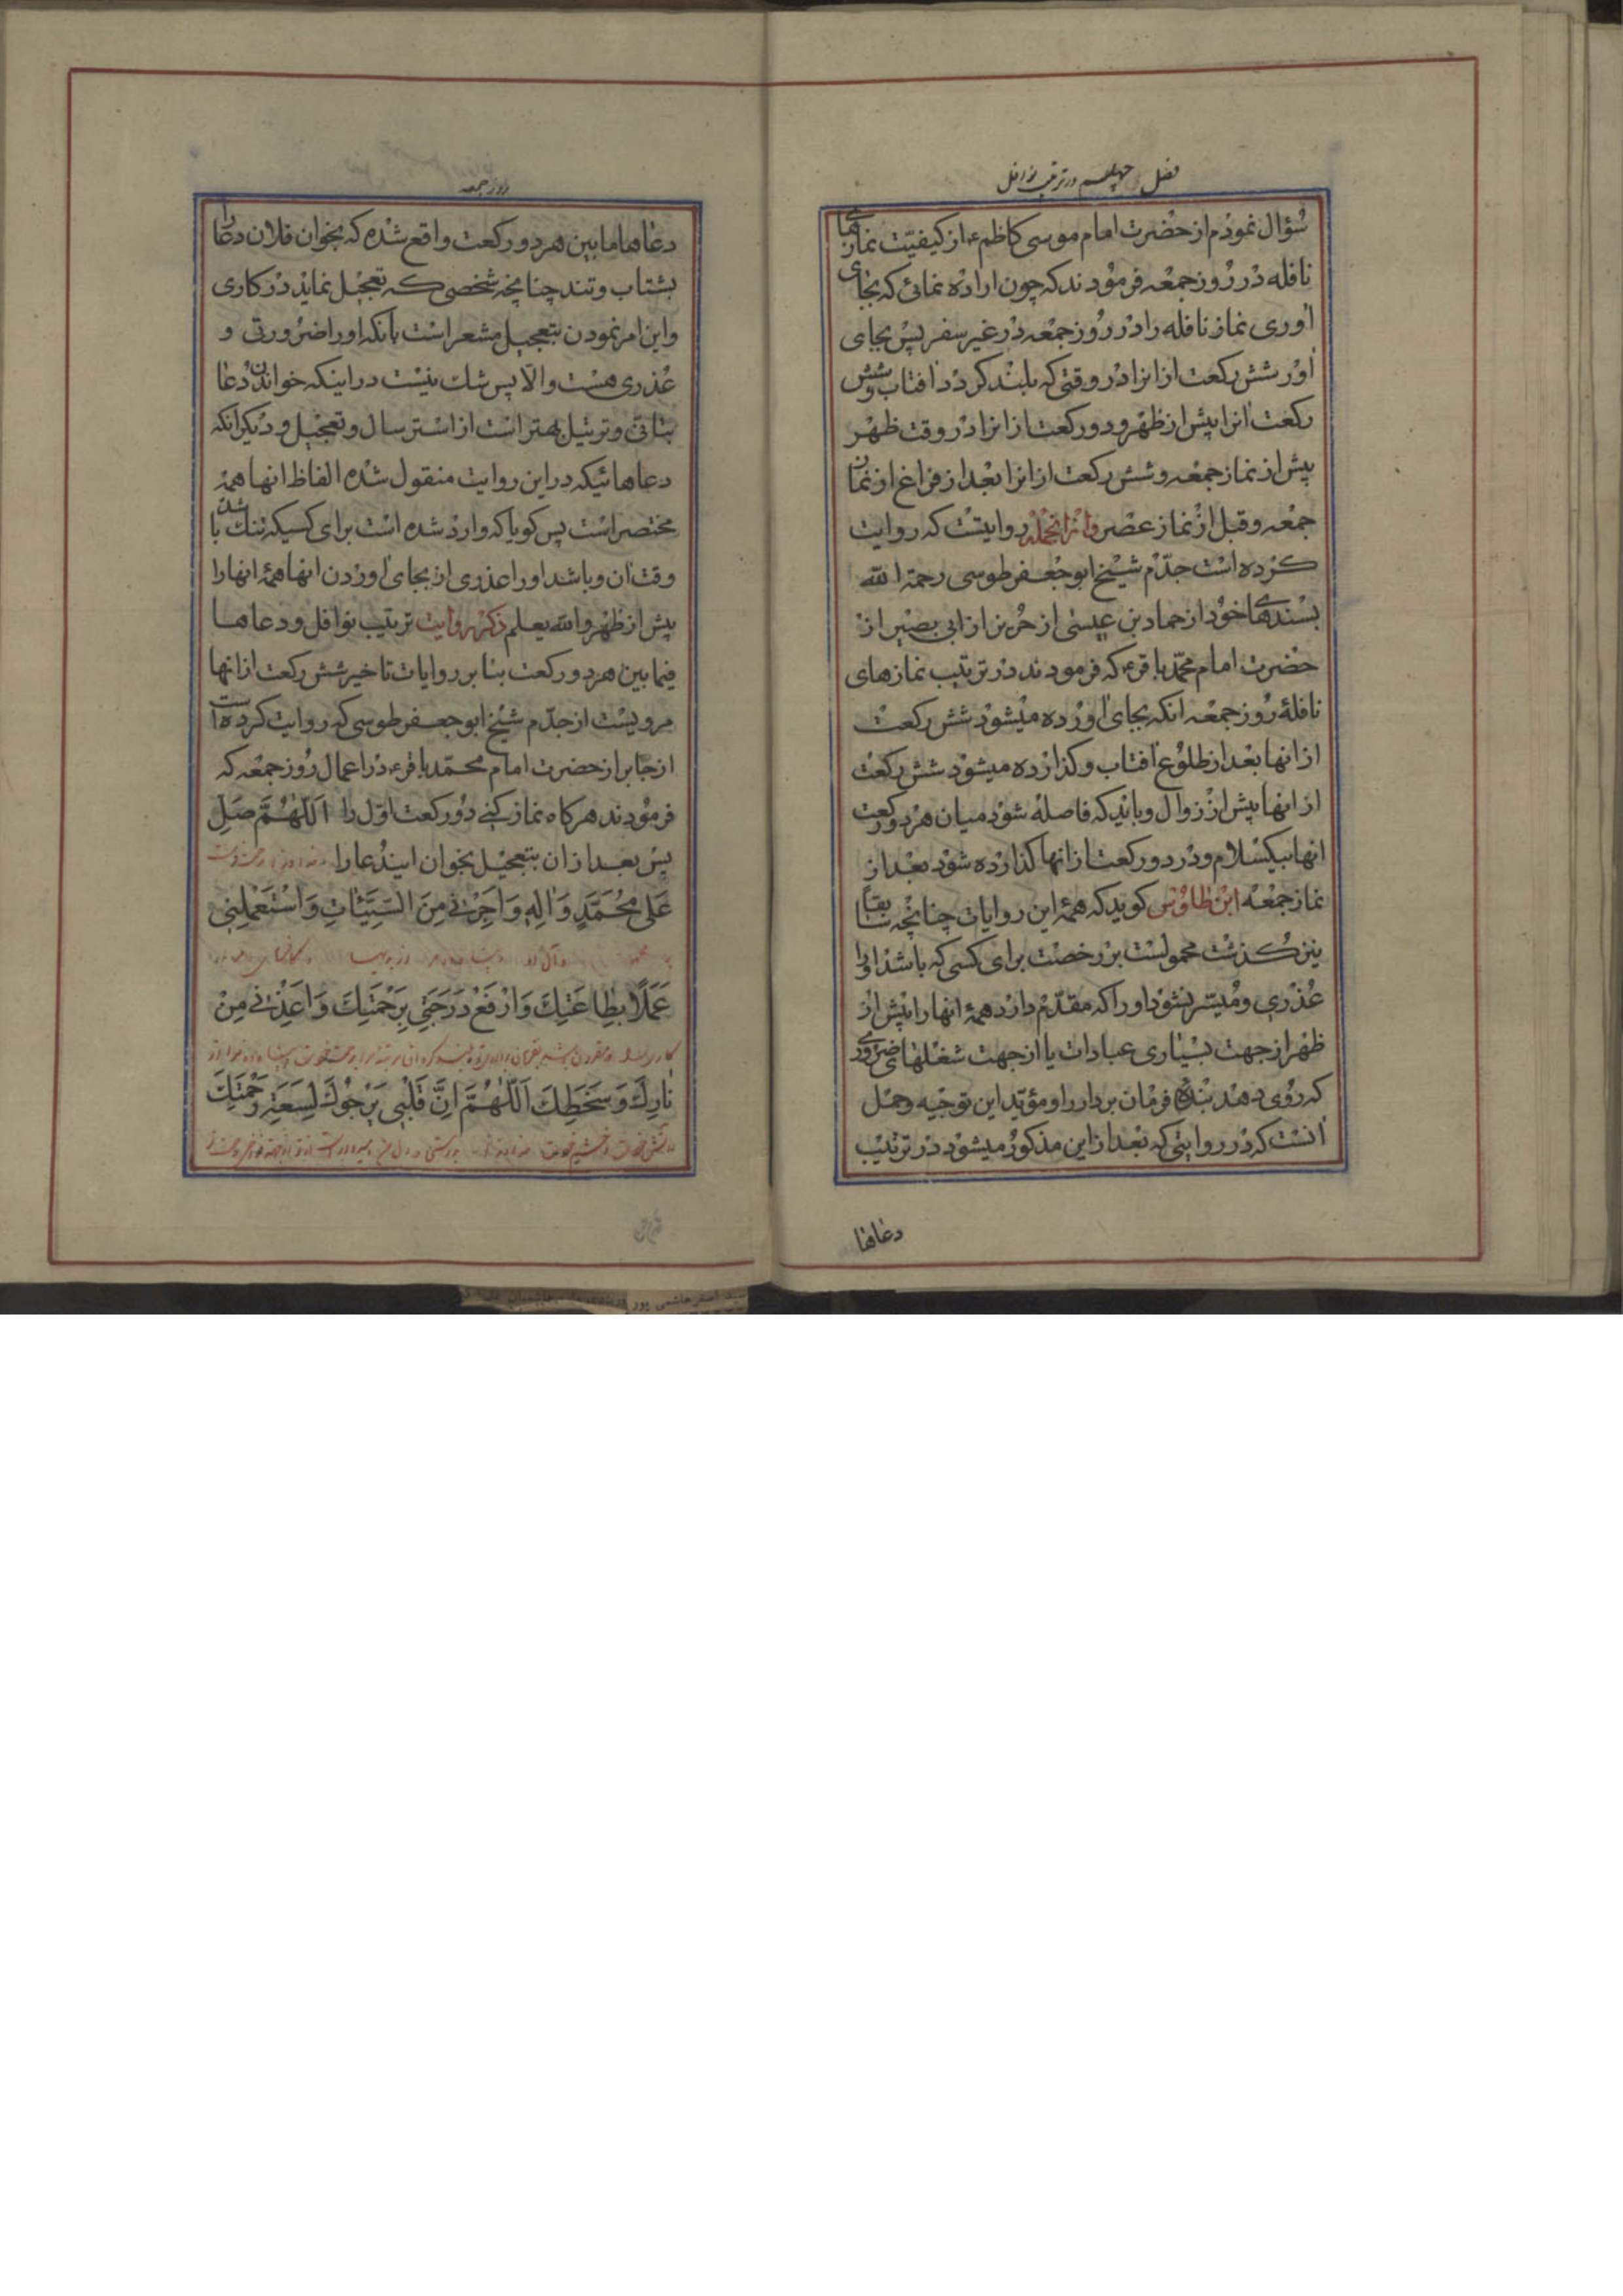 فصل چهلم در ترتیب نوافل
سُؤال نمودم از حضرت امام موسی کاظم ع از کیفیّت نمازهای
نافله در روز جمعه فرمودند که چون اراده نمائی که بجای
اوری نماز نافله را در روز جمعه در غیر سفر پس بجای
اور شش رکعت از انرا در وقتی که بلند کردد افتاب و شش
رکعت انرا پیش از ظهر و دو رکعت از انرا در وقت ظهر
پیش از نماز جمعه و شش رکعت از انرا بعد از فراغ از نماز
جمعه و قبل از نماز عصر و از انجمله روایتست که روایت
کرده است جدّم شیخ ابو جعفر طوسی رحمة الله
بسندهای خود از حماد بن عیسی از حریز از ابی بصیر از
حضرت امام محمّد باقر ع که فرمودند در ترتیب نمازهای
نافلهٔ روز جمعه انکه بجای اورده میشود شش رکعت
از انها بعد از طلوع افتاب و کذارده میشود شش رکعت
از انها پیش از زوال و باید که فاصله شود میان هر دو رکعت
انها بیکسلام و در دو رکعت از انها کذارده شود بعد از
نماز جمعه ابن طاوس کوید که همهٔ این روایات چنانچه سابقا
نیز کذشت محمولست بر رخصت برای کسی که باشد او را
عُذری و مُیسّر نشود او را که مقدّم دارد همهٔ انها را پیش از
ظهر از جهت بسیاری عبادات یا از جهت شغلهای ضروری
که روی دهد بندهٔ فرمان بردار را و مؤیّد این توجیه و حمل
انست که در روایتی که بعد از این مذکور میشود در ترتیب
دعاها
روز جمعه
دعاها ما بین هر دو رکعت واقع شده که بخوان فلان دعا را
بشتاب و تند چنانچه شخصی که تعجیل نماید در کاری
و این امر نمودن بتعجیل مشعر است بانکه او را ضرورتی و
عُذری هست و الّا پس شک نیست در اینکه خواندن دُعا
بتانّی و ترتیل بهتر است از استرسال و تعجیل و دیکر انکه
دعاهائیکه در این روایت منقول شده الفاظ انها همهٔ
مختصر است پس کویا که وارد شده است برای کسیکه تنک شده با
وقت ان و باشد او را عذری از بجای اوردن انها همهٔ انها را
پیش از ظهر و الله یعلم ذکر روایت ترتیب نوافل و دعاها
فیما بین هر دو رکعت بنا بر روایات تاخیر شش رکعت از انها
مرویست از جدّم شیخ ابو جعفر طوسی که روایت کرده است
از جابر از حضرت امام محمّد باقر ع در اعمال روز جمعه که
فرمودند هر کاه نماز کنی دو رکعت اوّل را اَللّهُمَّ صَلِّ
پس بعد از ان بتعجیل بخوان ایندُعا را
عَلی مُحَمَّدٍ وَ الِهِ وَ اَجِرْنی مِنَ السَّیِّئاتِ وَ اسْتَعْمِلْنِی
عَمَلًا بِطاعَتِكَ وَ ارْفَعْ دَرَجَتِی بِرَحْمَتِكَ وَ اَعِذْنی مِنْ
نارِكَ وَ سَخَطِكَ اَللّهُمَّ اِنَّ قَلْبِی یَرْجُوكَ لِسَعَةِ رَحْمَتِكَ